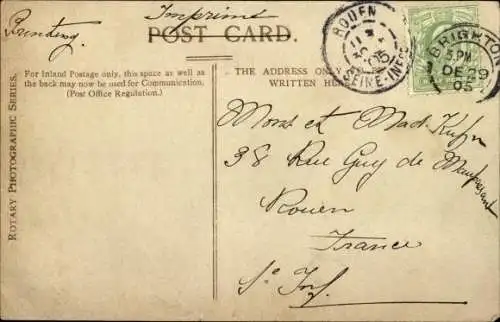 Printing
Imprimé
POST CARD.
For Inland Postage only, this space as well as
the back may now be used for Communication.
(Post Office Regulation.)
THE ADDRESS ONLY
WRITTEN HERE
ROTARY PHOTOGRAPHIC SERIES.
ROUEN
SEINE-INFRE
BRIGHTON
5.PM
DE 29
05
Monsr et Mad
38 Rue Guy de Maupassant
Rouen
France
Se Inf.